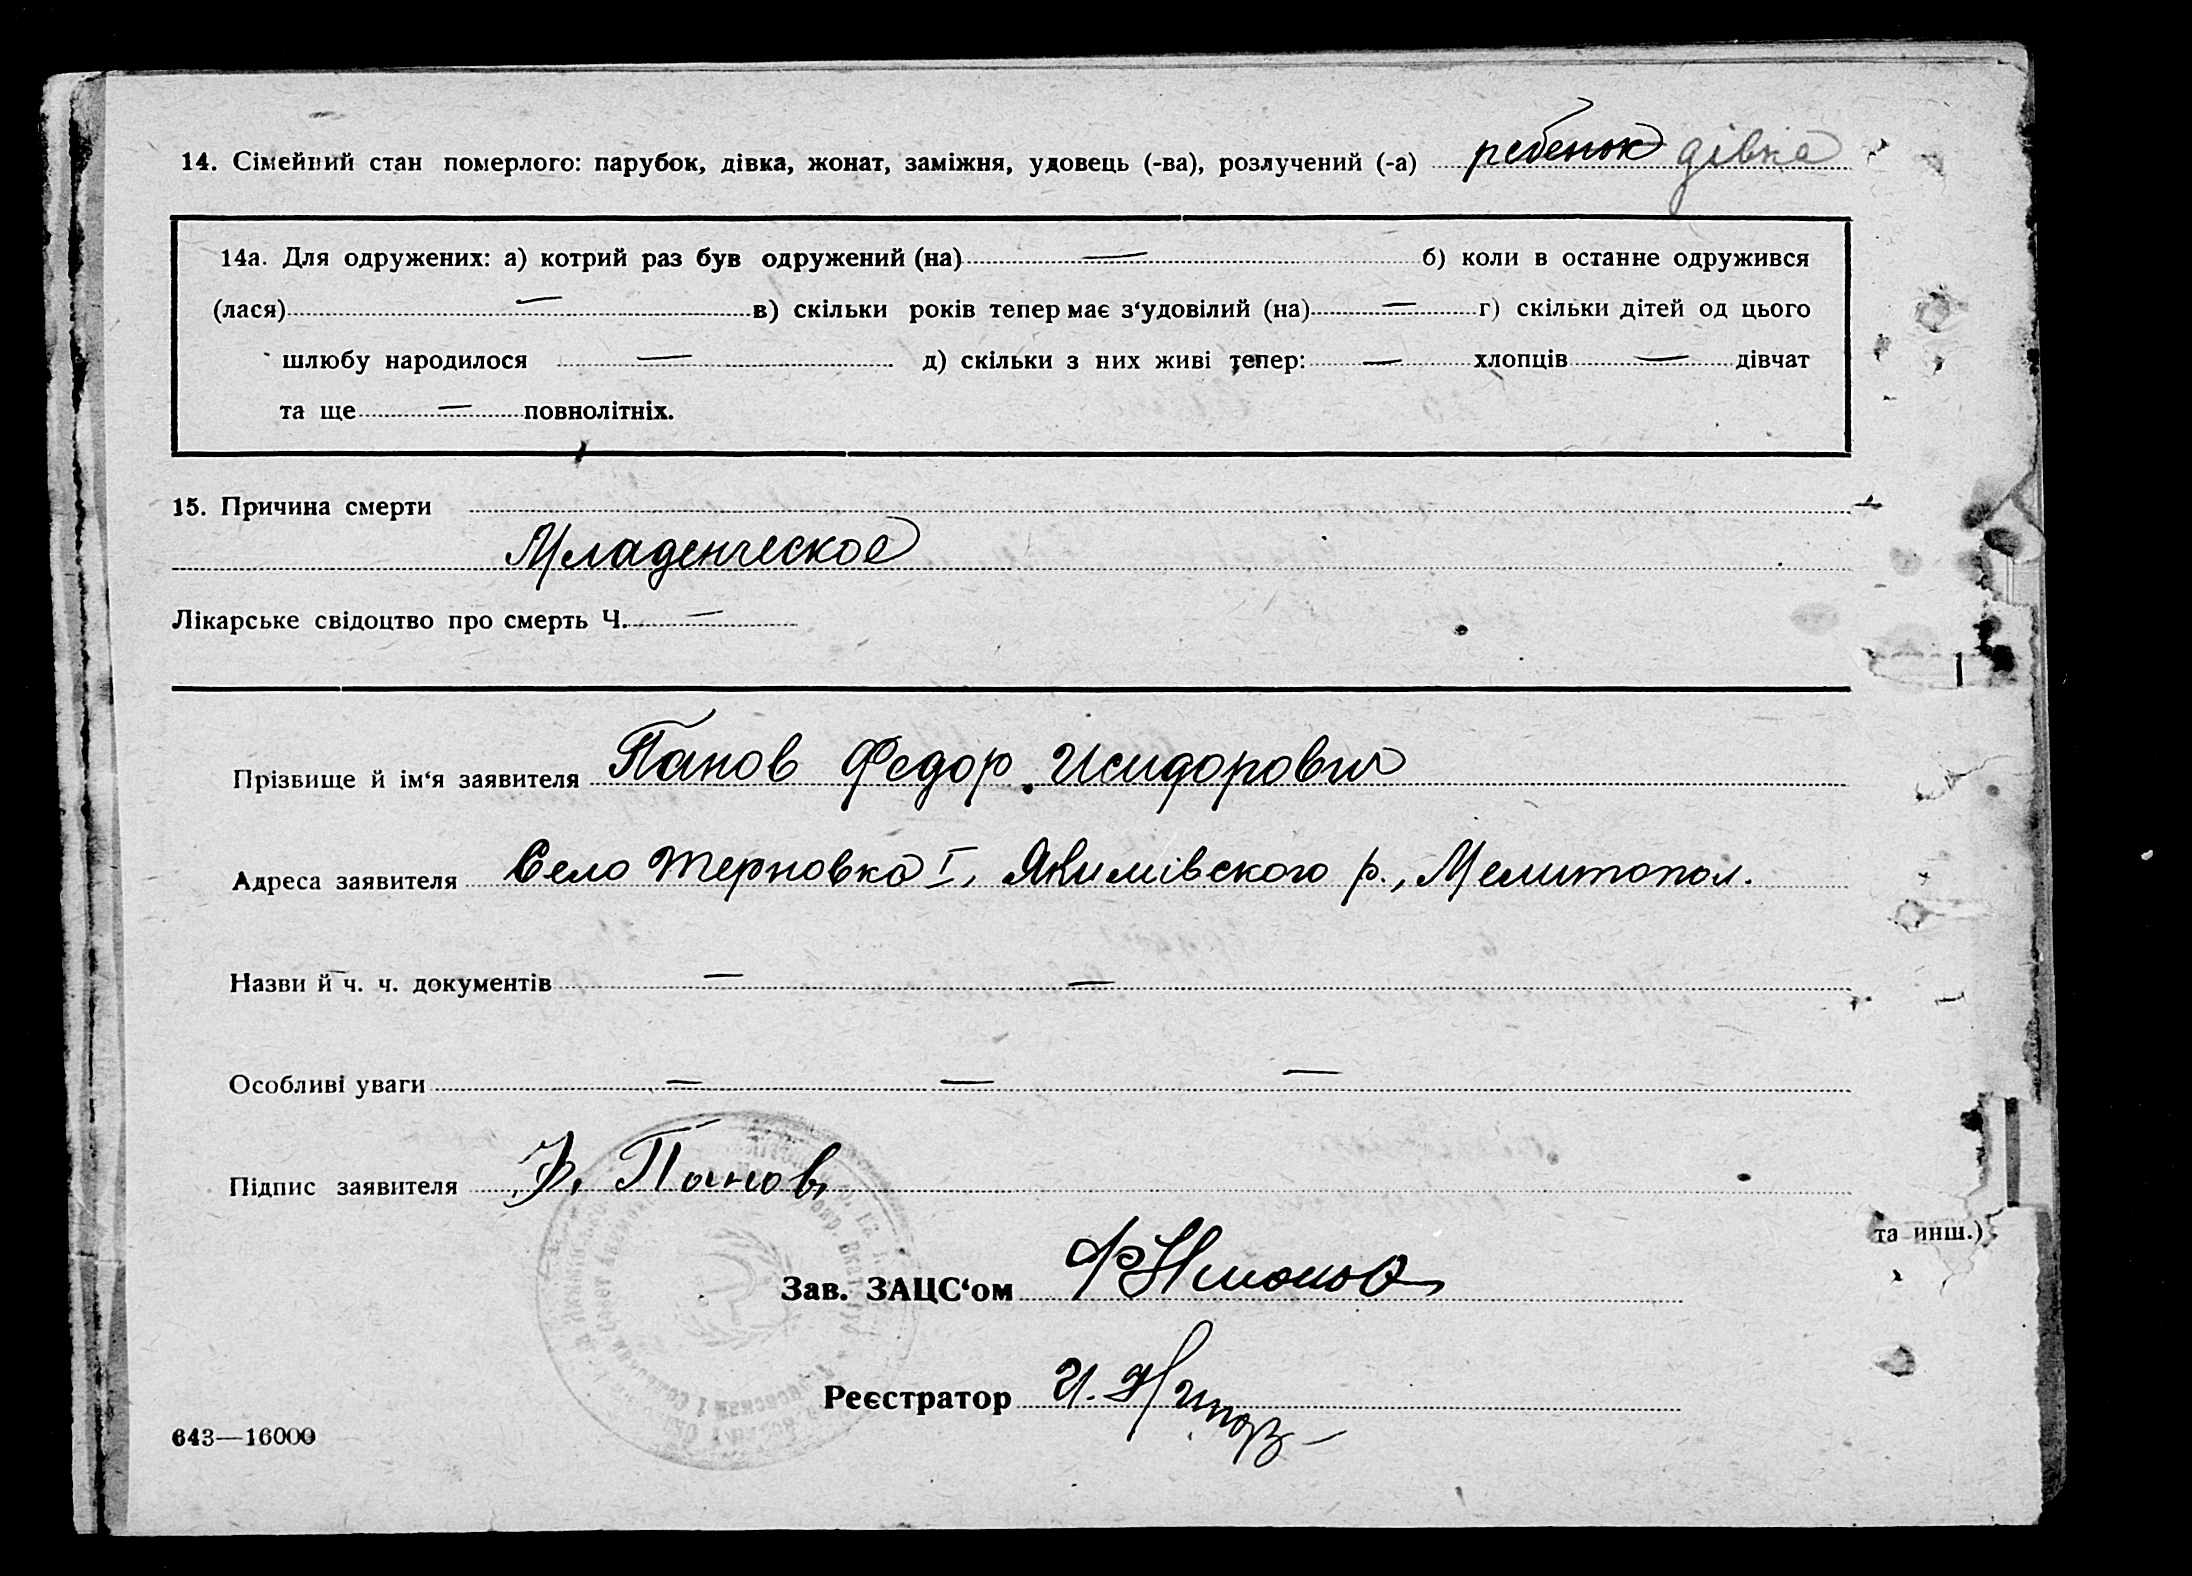 14. Сімейний стан померлого: парубок, дівка, жонат, заміжня, удовець (-ва), розлучений (-а) ребенок дівка
14а. Для одружених: а) котрий раз був одружений (на) — б) коли в останне одружився
(лася) — в) скільки років тепер має з‘удовілий (на) — г) скільки дітей од цього
шлюбу народилося — д) скільки з них живі тепер: — хлопців — дівчат
та ще — повнолітніх.
15. Причина смерти
Младенческое
Лікарське свідоцтво про смерть Ч. —
Прізвище й ім‘я заявителя Панов Федор Исидорович
Адреса заявителя Село Терновка I, Якимівского р., Мелитопол.
Назви й ч. ч. документів — —
Особливі уваги — — —
Підпис заявителя Панов
та инш.)
Зав. ЗАЦС‘ом
Реєстратор И.
643—16000